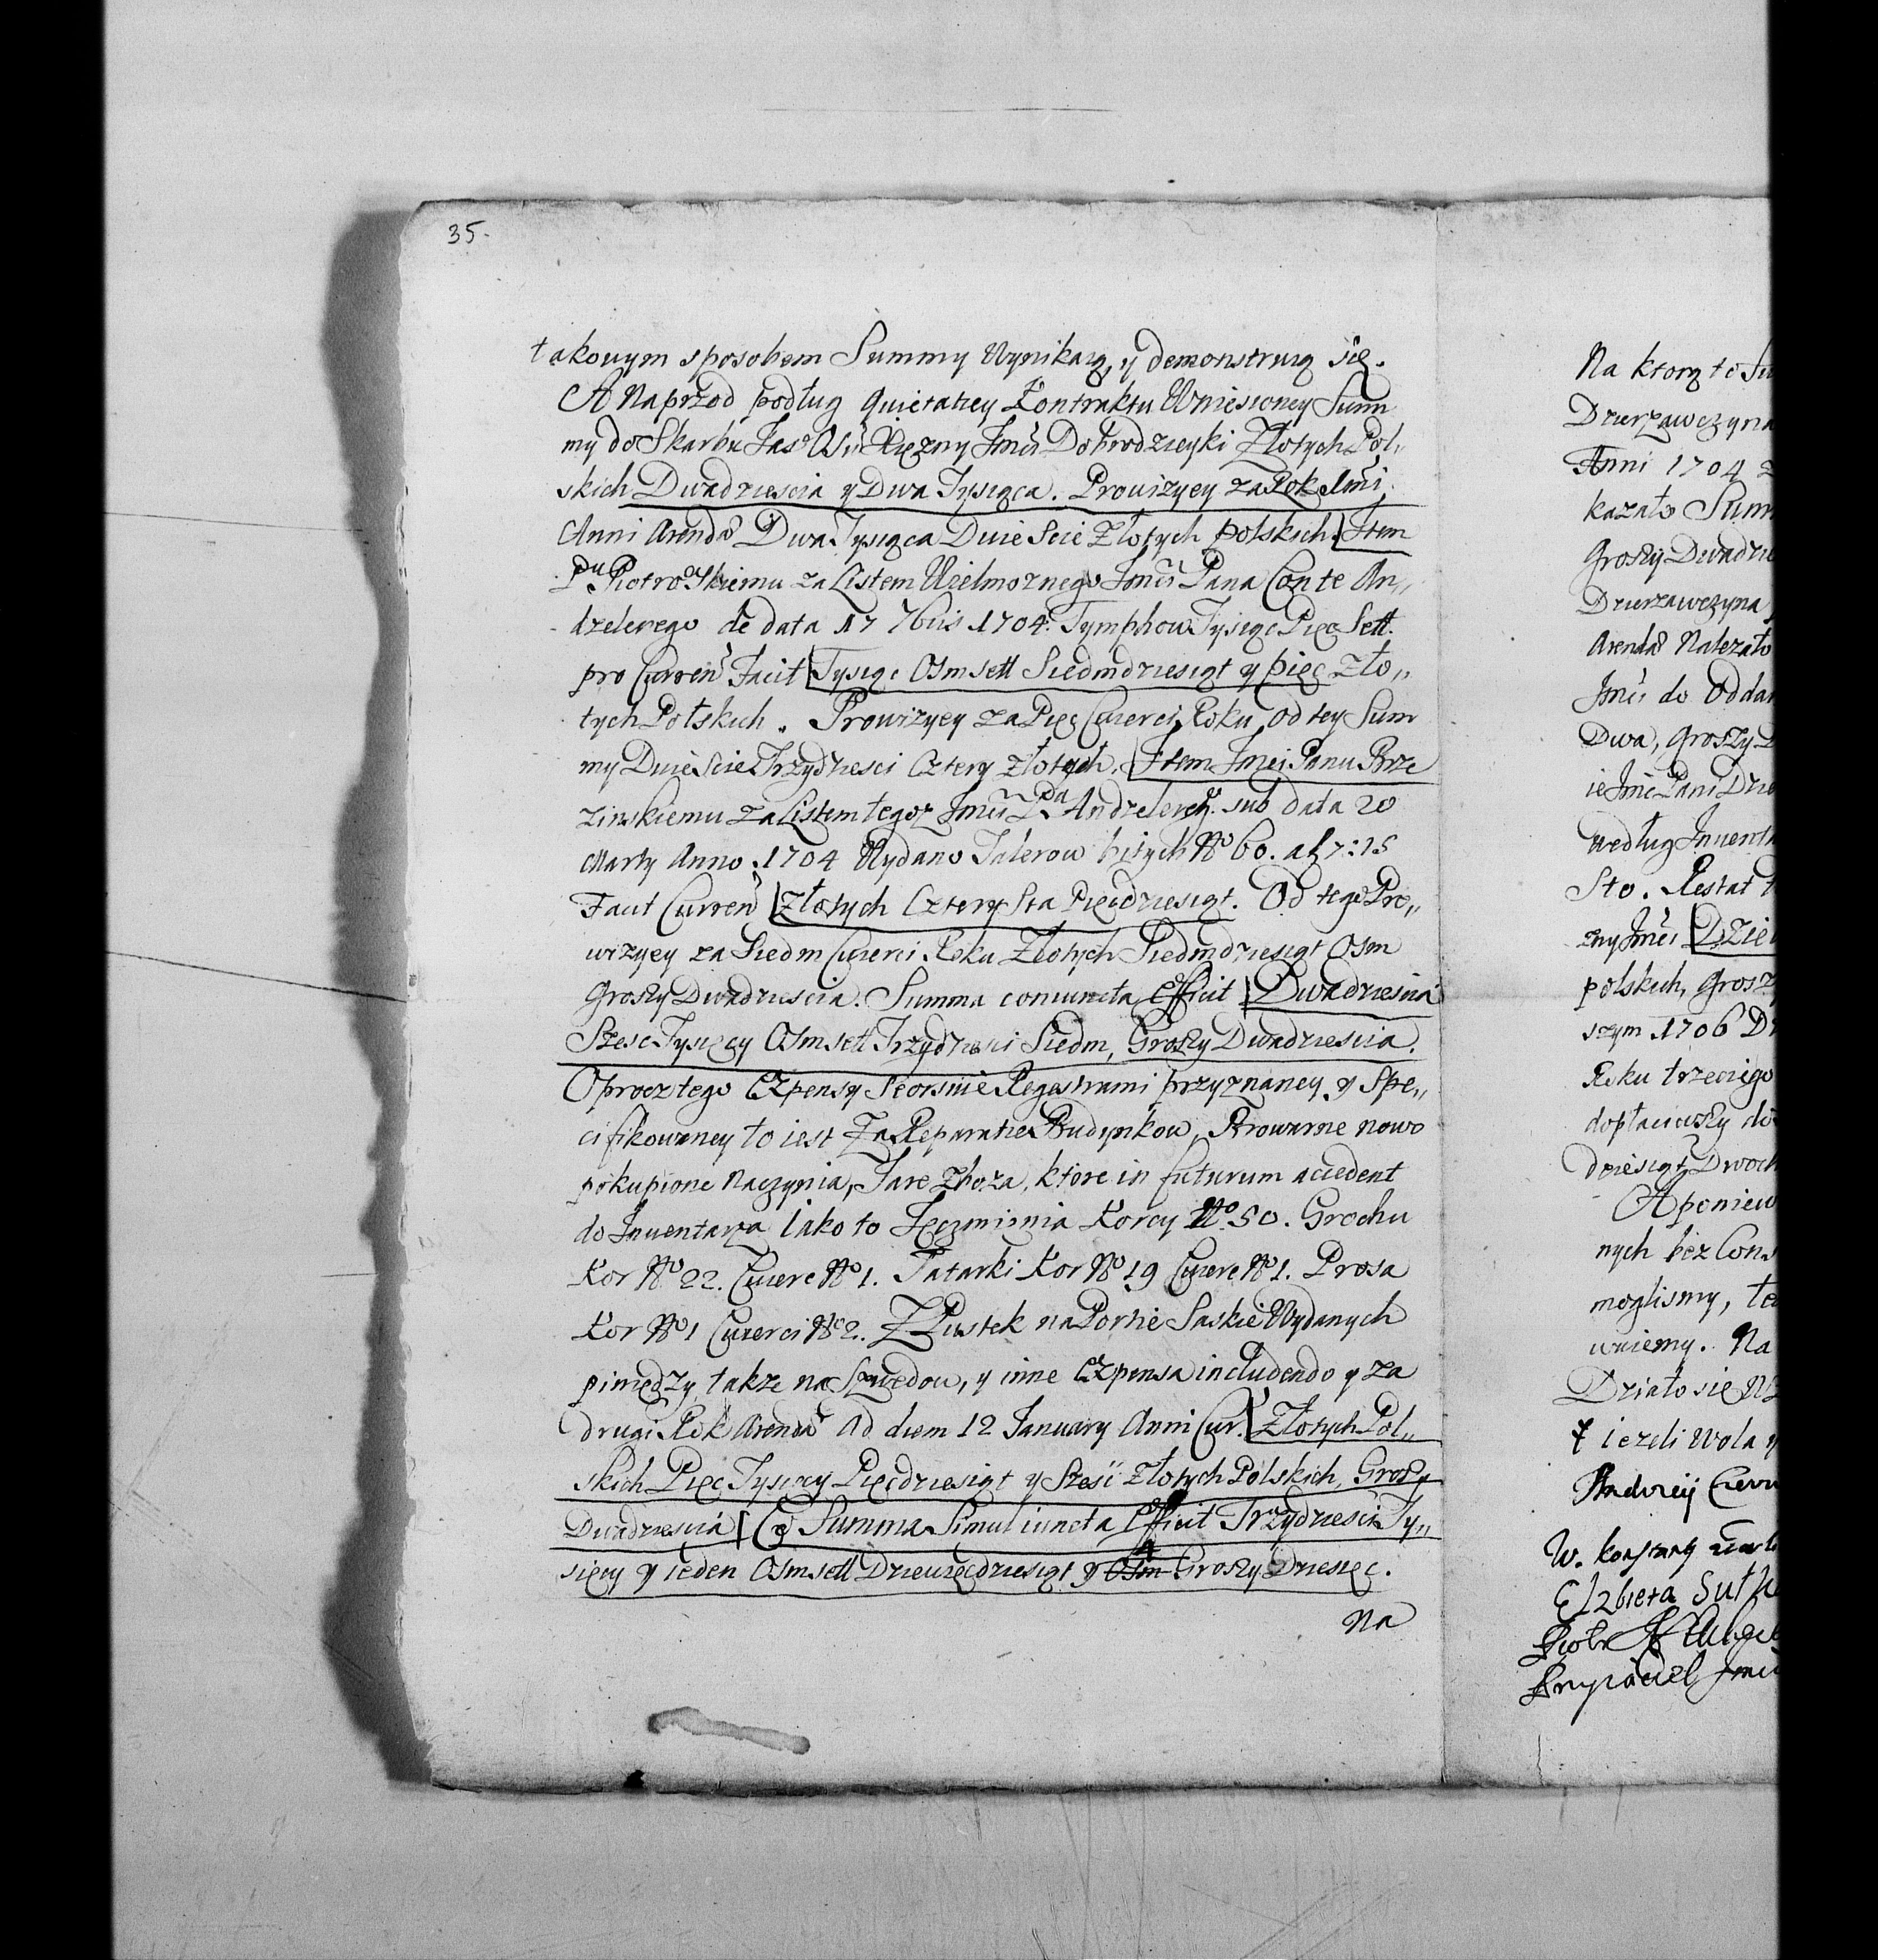 35.
takowym sposobem Summy Wynikaią, y demonstruią się.
A Naprzod podług quietatiey Kontraktu Wniesioney Sum
my do Skarbu Jas Oś Xiężny Jmći Dobrodzieyki Złotych Pol„
skich Dwadziescia y Dwa Tysiąca. Prowizyey za Rok
Anni Arendæ Dwa Tysiąca Dwie Scie Złotych polskich. Item
Pu Piotrowskiemu za Listem Wielmoznego Jmći Pana Conte An„
dzelerego de data 17 7bris 1704. Tymphow Tysiąc Pięc Sett.
pro Curren Facit Tysiąc Osmsett Siedmdziesiąt y pięc Zło„
tych Polskich. Prowizyey za Pięc Cwierci Roku, od tey Sum
my Dwie Scie Trzydziesci Cztery złotych. Item Jmći Panu Brze
zinskiemu za Listem tegoz Jmći Pa Andzelereg. sub data 20
Marty Anno 1704 Wydano Talerow bitych No 60. a f 7:15
Facit Curren Złotych Cztery Sta Pięcdziesiąt. Od tego Pro„
wizyey za Siedm Cwierci Roku Złotych Siedmdziesiąt Osm
Groszy Dwadziescia. Summa coniuncta Efficit Dwadziescia
Szesc Tysięcy Osmsett Trzydziesci Siedm, Groszy Dwadziescia.
Oprocz tego Expensy Seorsive Regestrami przyznaney y Spe„
cifikowaney to iest Za Reparatie Budynkow, Browarne nowo
pokupione naczynia, Jare Zboza, ktore in futurum accedent
do Inwentarza iako to Ięczmienia Korcy No 50. Grochu
Kor No 22. Cwierc No 1. Tatarki Kor No 19 Cwierc No 1. Prosa
Kor No 1 Cwierci No 2. Z Pustek na Portie Saskie Wydanych
pieniędzy, takze na Szwedow, y inne Expensa includendo y za
drugi Rok Arendæ Ad diem 12 January Anni Cur. Złotych Pol„
skich Pięc Tysięcy Pięcdziesiąt y Szesc Złotych Polskich, Groszy
Dwadziescia Summa Simul iuncta Efficit Trzydziesci Ty„
sięcy y ieden Osmsett Dziewięcdziesiąt y 4 Osm Groszy Dziesięc.
na
Na ktorą to
Dzierzawczyna
Anni 1704
kazało Sum
Groszy Dwadzie
Dzierzawczyna
Arendæ Nalezało
Jmći do Oddan
Dwa, Groszy
ie Jmći Pani Drie
według Inwent
Sto. Restat
zny Jmći Dzie
polskich, Grosz
szym 1706
Roku trzeciego
dopłaciwszy do
dziesiąt Dwoch
A poniew
nych bez Con
moglismy, te
wuiemy. Na
Działo się
iezeli Wola y
Andrzij
W. Konstanty
Elzbieta
Piotr